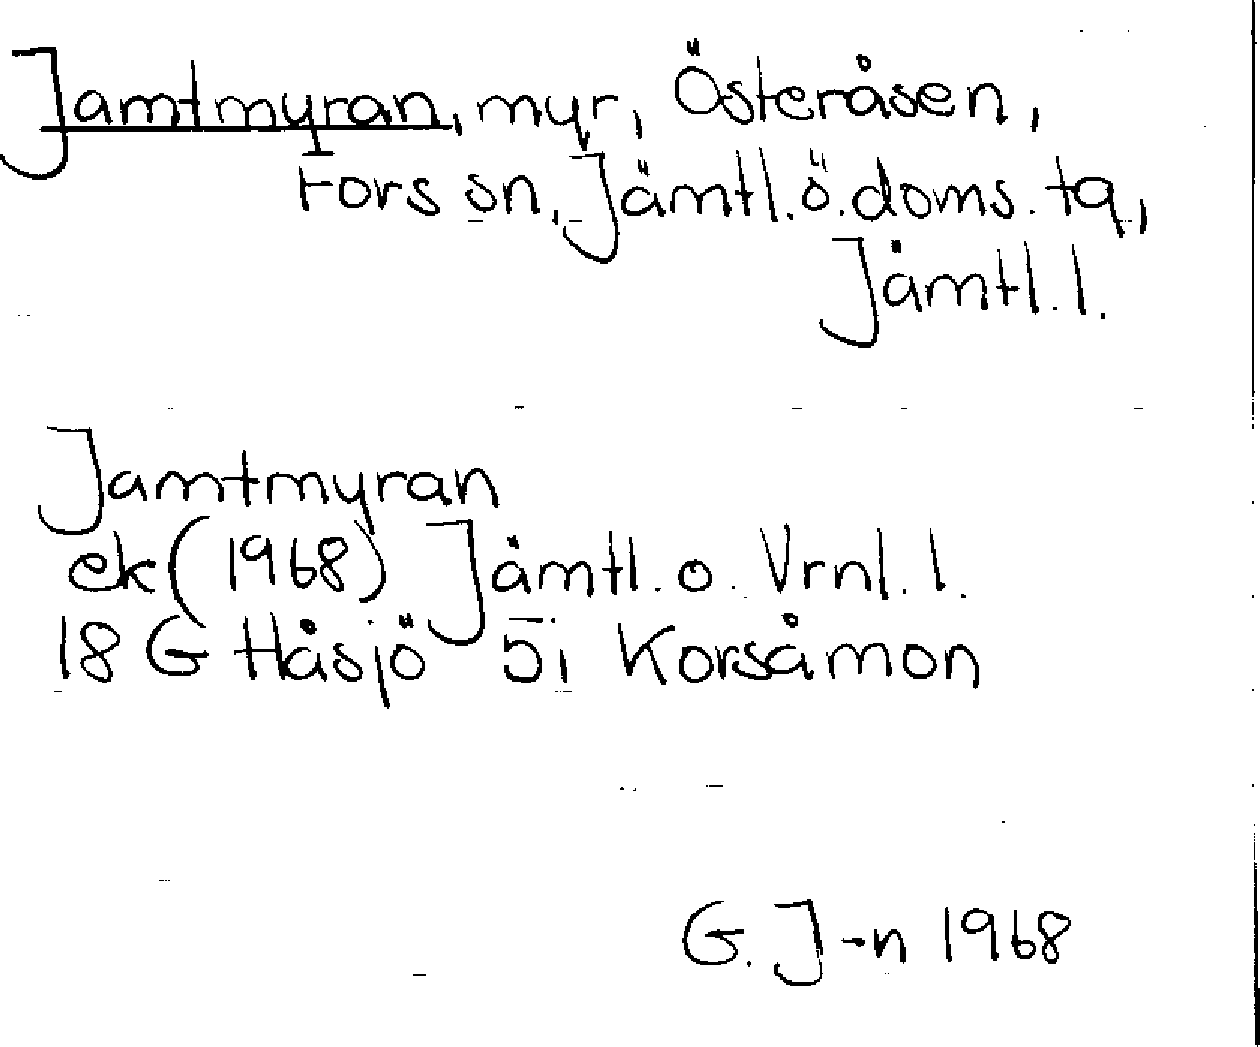 Jamtmyran, myr, Österåsen,
Fors sn, Jämtl. ö. doms. tg,
Jämtl. l.
Jamtmyran
ek (1968) Jämtl. o. Vrnl. l.
18 G Håsjö 5i Korsåmon
G. J-n 1968